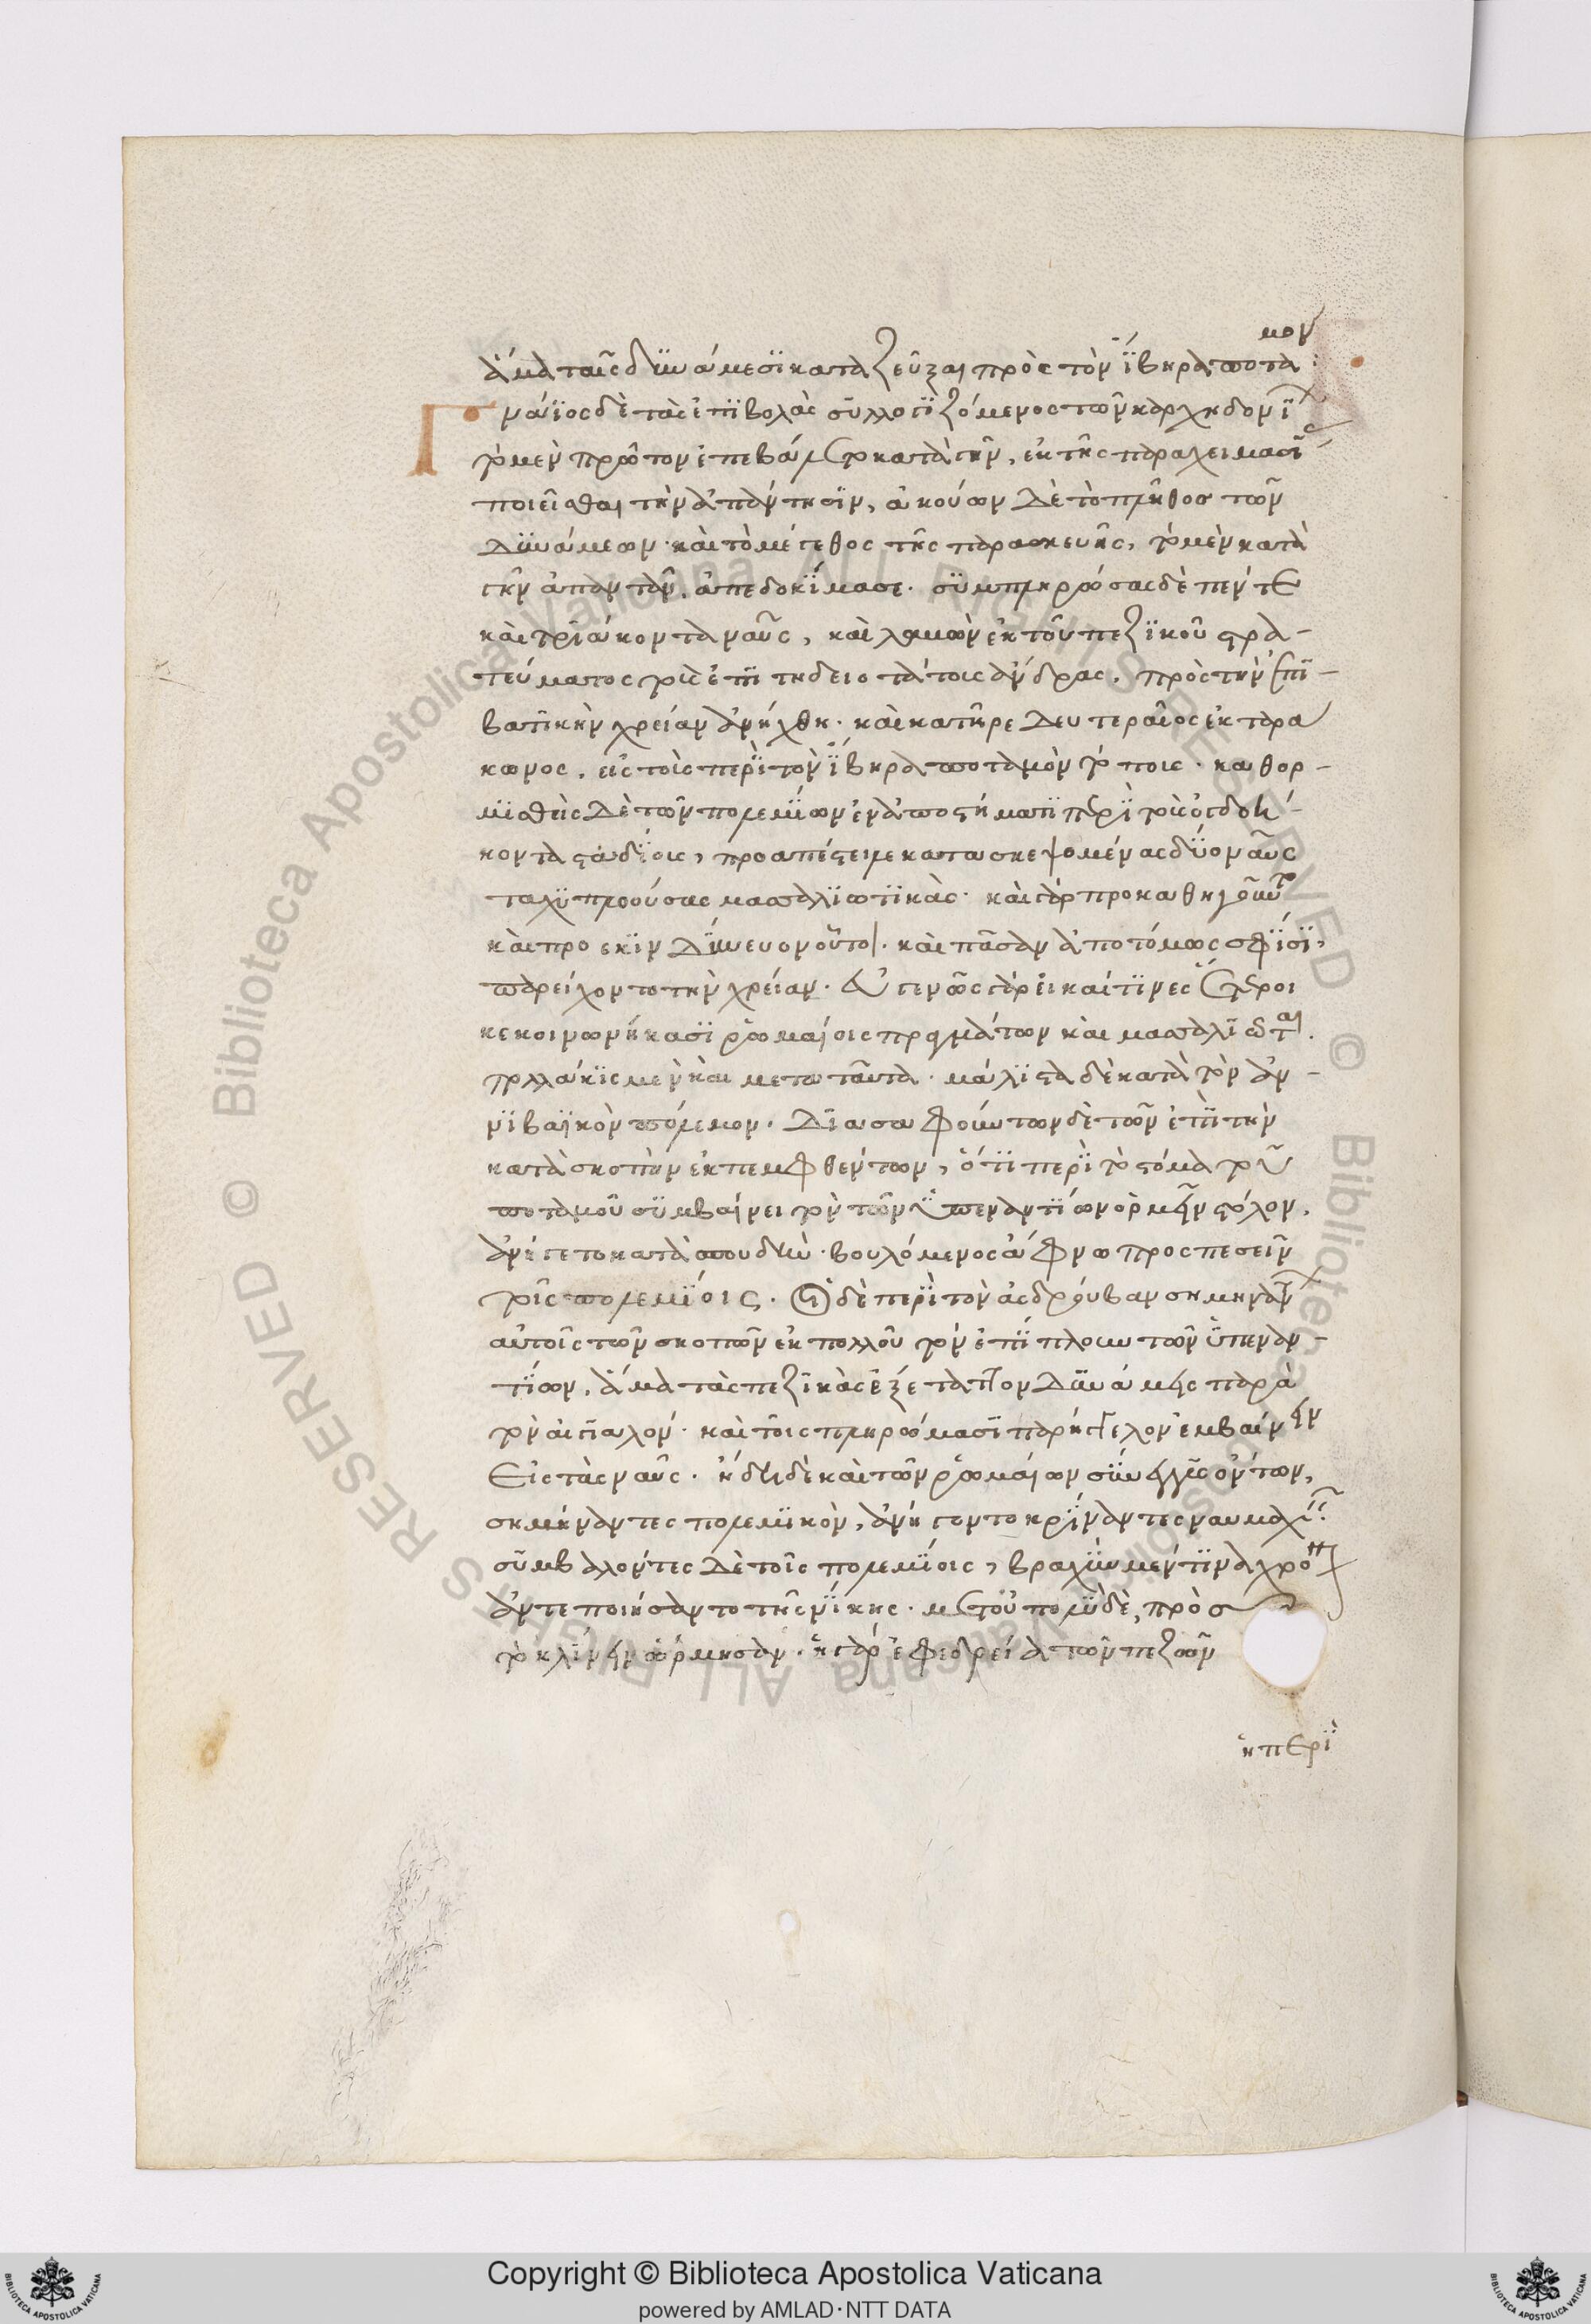 μον
ἅμα ταῖς δυνάμεσι καταζεῦξαι πρὸς τὸν ἴβηρα ποτα
Γνάϊος δὲ τὰς ἐπιβολὰς συλλογιζόμενος τῶν καρχηδονί
τὸ μὲν πρῶτον ἐπεβάλετο κατὰ γῆν, ἐκ τῆς παραχειμασί
ποιεῖσθαι τὴν ἀπάντησιν, ἀκούων δὲ τὸ πλῆθος τῶν
δυνάμεων· καὶ τὸ μέγεθος τῆς παρασκευῆς, τὸ μὲν κατὰ
γῆν ἀπαντᾶν, ἀπεδοκίμασε· συμπληρώσας δὲ πέντε
καὶ τριάκοντα ναῦς, καὶ λαμὼν ἐκ τοῦ πεζικοῦ στρα-
τεύματος τοὺς ἐπιτηδειοτάτους ἄνδρας, πρὸς τὴν ἐπι-
βατικὴν χρείαν ἀνήχθη· καὶ κατῆρε δευτεραῖος ἐκ ταρα
κωνος, εἰς τοὺς περὶ τὸν ἴβηρα ποταμὸν τόπους· καθορ-
μισθεὶς δὲ τῶν πολεμίων ἐν ἀποστήματι περὶ τοὺς ὀγδοή-
κοντα σταδίους, προαπέστειλε κατασκεψομένας δύο ναῦς
ταχυπλοούσας μασσαλιωτικὰς· καὶ γὰρ προκαθηγοῦντο
καὶ προεκινδύνευον οὗτοι· καὶ πᾶσαν ἀποτόμως σφίσι,
παρείχοντο τὴν χρείαν· εὐγενῶς γὰρ εἰ καί τινες ἕτεροι
κεκοινωνήκασι ῥωμαίοις πραγμάτων καὶ μασσαλιῶται.
πολλάκις μὲν καὶ μετὰ ταῦτα· μάλιστα δὲ κατὰ τὸν ἀν-
νιβαϊκὸν πόλεμον· διασαφούντων δὲ τῶν ἐπὶ τὴν
κατασκοπὴν ἐκπεμφθέντων, ὅτι περὶ τὸ στόμα τοῦ
ποταμοῦ συμβαίνει τὸν τῶν ὑπεναντίων ὁρμεῖν στόλον,
ἀνήγετο κατὰ σπουδὴν· βουλόμενος ἄφνω προσπεσεῖν
τοῖς πολεμίοις· οἱ δὲ περὶ τὸν ἀσδρούβαν σημηναν
αὐτοῖς τῶν σκοπῶν ἐκ πολλοῦ τὸν ἐπίπλουν τῶν ὑπεναν-
τίων, ἅμα τὰς πεζικὰς ἐξέταττον δυνάμεις παρὰ
τὸν αἰγιαλόν· καὶ τοῖς πληρώμασι παρήγγελον ἐμβαίνειν
εἰς τὰς ναῦς· ἤδη δὲ καὶ τῶν ῥωμαίων σύνεγγυς ὄντων,
σημήναντες πολεμικὸν, ἀνήγοντο κρίναντες ναυμαχεῖν·
συμβαλόντες δὲ τοῖς πολεμίοις, βραχὺν μέν τινα χρό
ἀντεποιήσαντο τῆς νίκης· μετ' οὐ πολὺ δὲ, πρὸς
τὸ κλίνειν ὥρμησαν· ἡ γὰρ ἐφεδρεία τῶν πεζῶν
ἡ περὶ